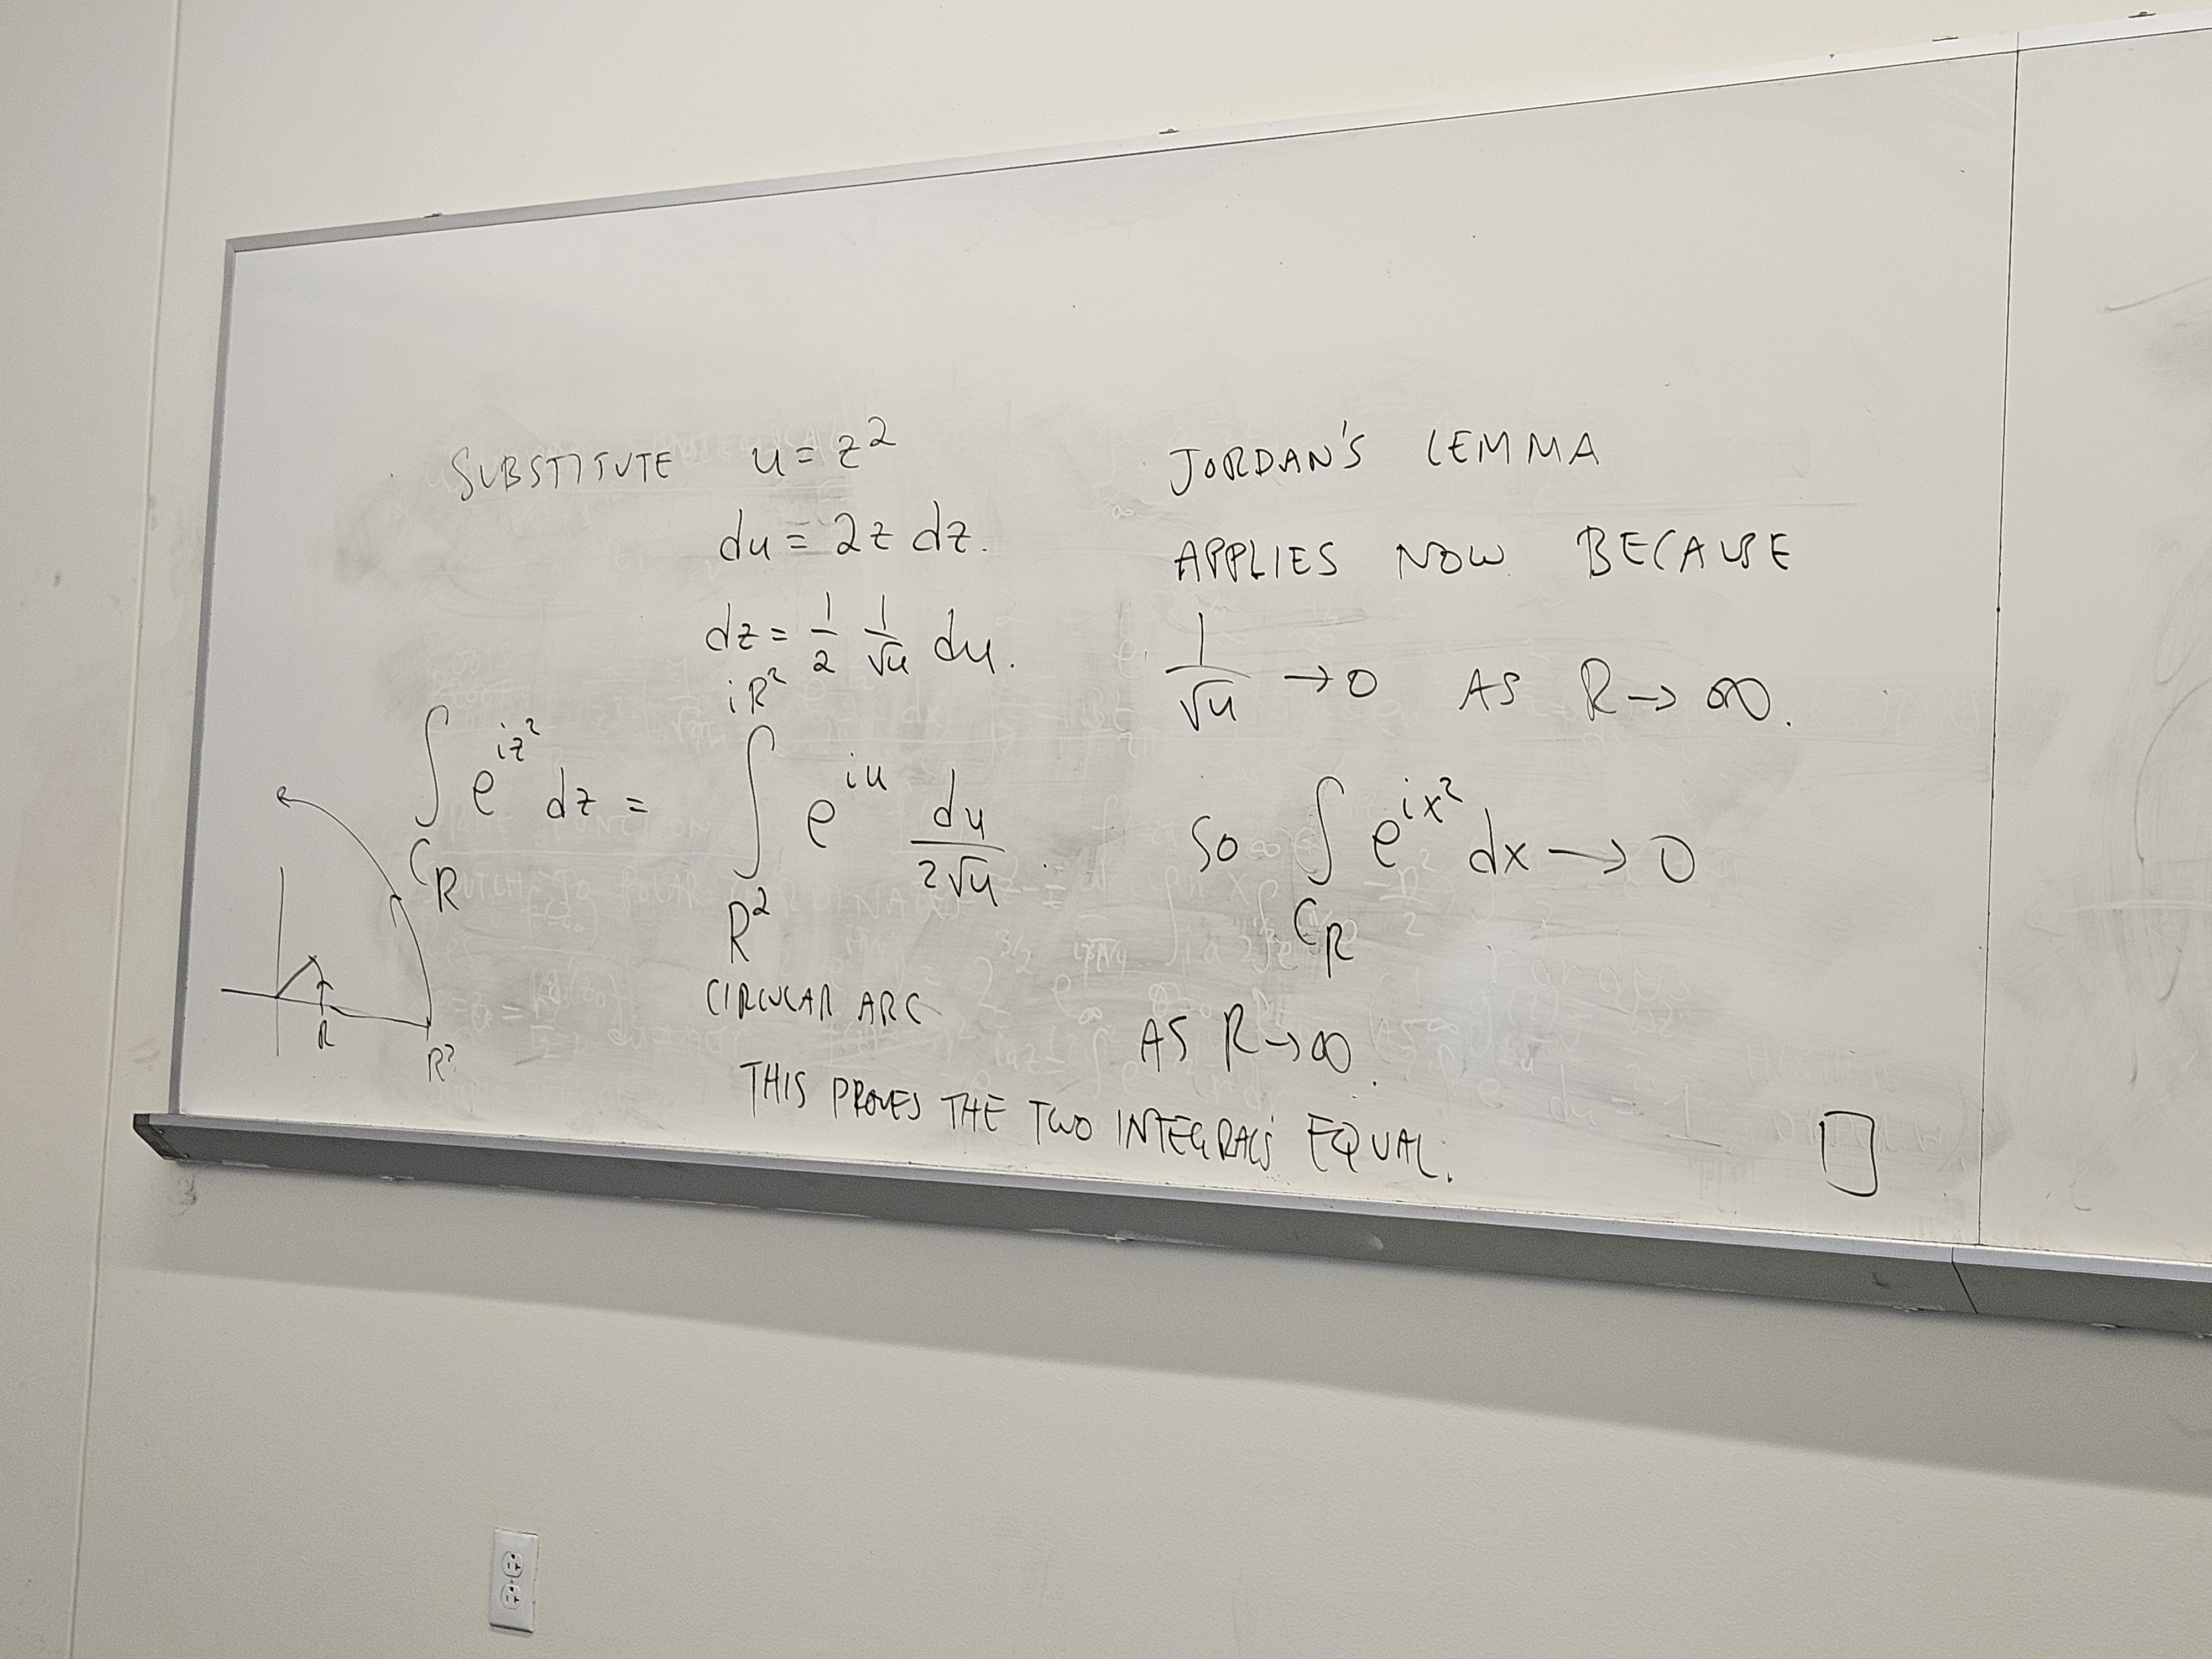 SUBSTITUTE u = z²
du = 2z dz.
dz = 1/2 1/√u du.
∫_{C_R} e^{iz²} dz = ∫_{R²}^{iR²} e^{iu} du/(2√u).
CIRCULAR ARC
R
R²
JORDAN'S LEMMA
APPLIES NOW BECAUSE
1/√u → 0 AS R → ∞.
SO ∫_{C_R} e^{ix²} dx → 0
AS R → ∞.
THIS PROVES THE TWO INTEGRALS EQUAL. □